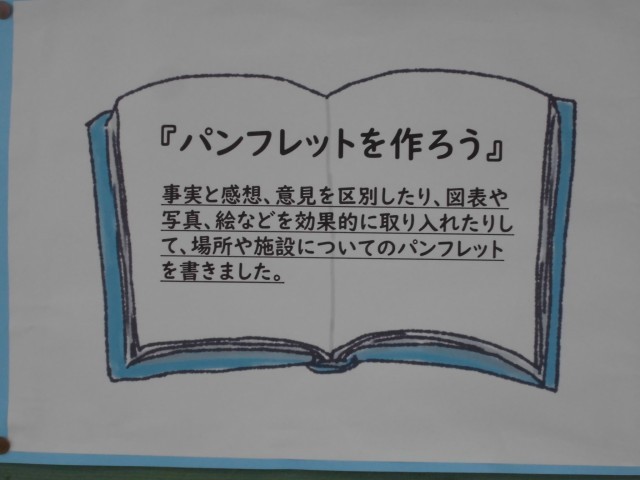 『パンフレットを作ろう』
事実と感想、意見を区別したり、図表や
写真、絵などを効果的に取り入れたりし
て、場所や施設についてのパンフレット
を書きました。